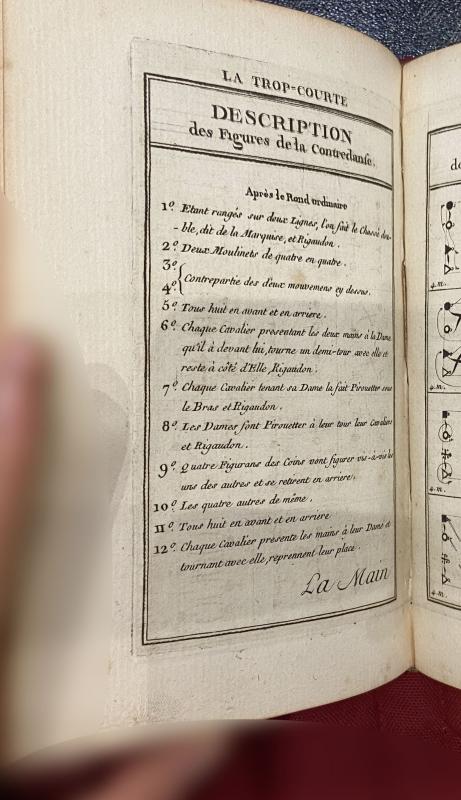 LA TROP=COURTE
DESCRIPTION
des Figures de la Contredanse.
Après le Rond ordinaire
1º. Etant rangés sur deux Lignes, l'on fait le Chassé dou-
-ble, dit de la Marquise, et Rigaudon.
2º. Deux Moulinets de quatre en quatre.
3º
4º. { Contrepartie des deux mouvemens cy dessus.
5º. Tous huit en avant et en arriere.
6º. Chaque Cavalier presentant les deux mains à la Dame
qu'il à devant lui, tourne un demi-tour avec elle et
reste à côté d'Elle, Rigaudon.
7º. Chaque Cavalier tenant sa Dame la fait Pirouetter sous
le Bras et Rigaudon.
8º. Les Dames font Pirouetter à leur tour leur Cavaliers
et Rigaudon.
9º. Quatre Figurans des Coins vont figurer vis-à-vis les
uns des autres et se retirent en arriere.
10º. Les quatre autres de même.
11º. Tous huit en avant et en arriere
12º. Chaque Cavalier presente les mains à leur Dame et
tournant avec elle, reprennent leur place.
La Main
4.m.
4.m.
4.m.
4.m.